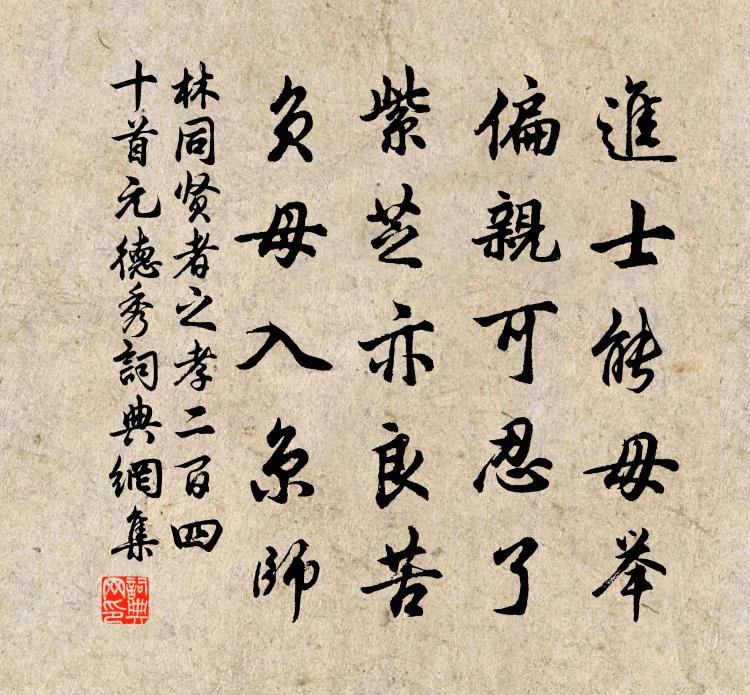 進士能毋举
偏親可忍了
紫芝亦良苦
负母入京師
林同贤者之孝二百四
十首元德秀詞典網集
詞典网印